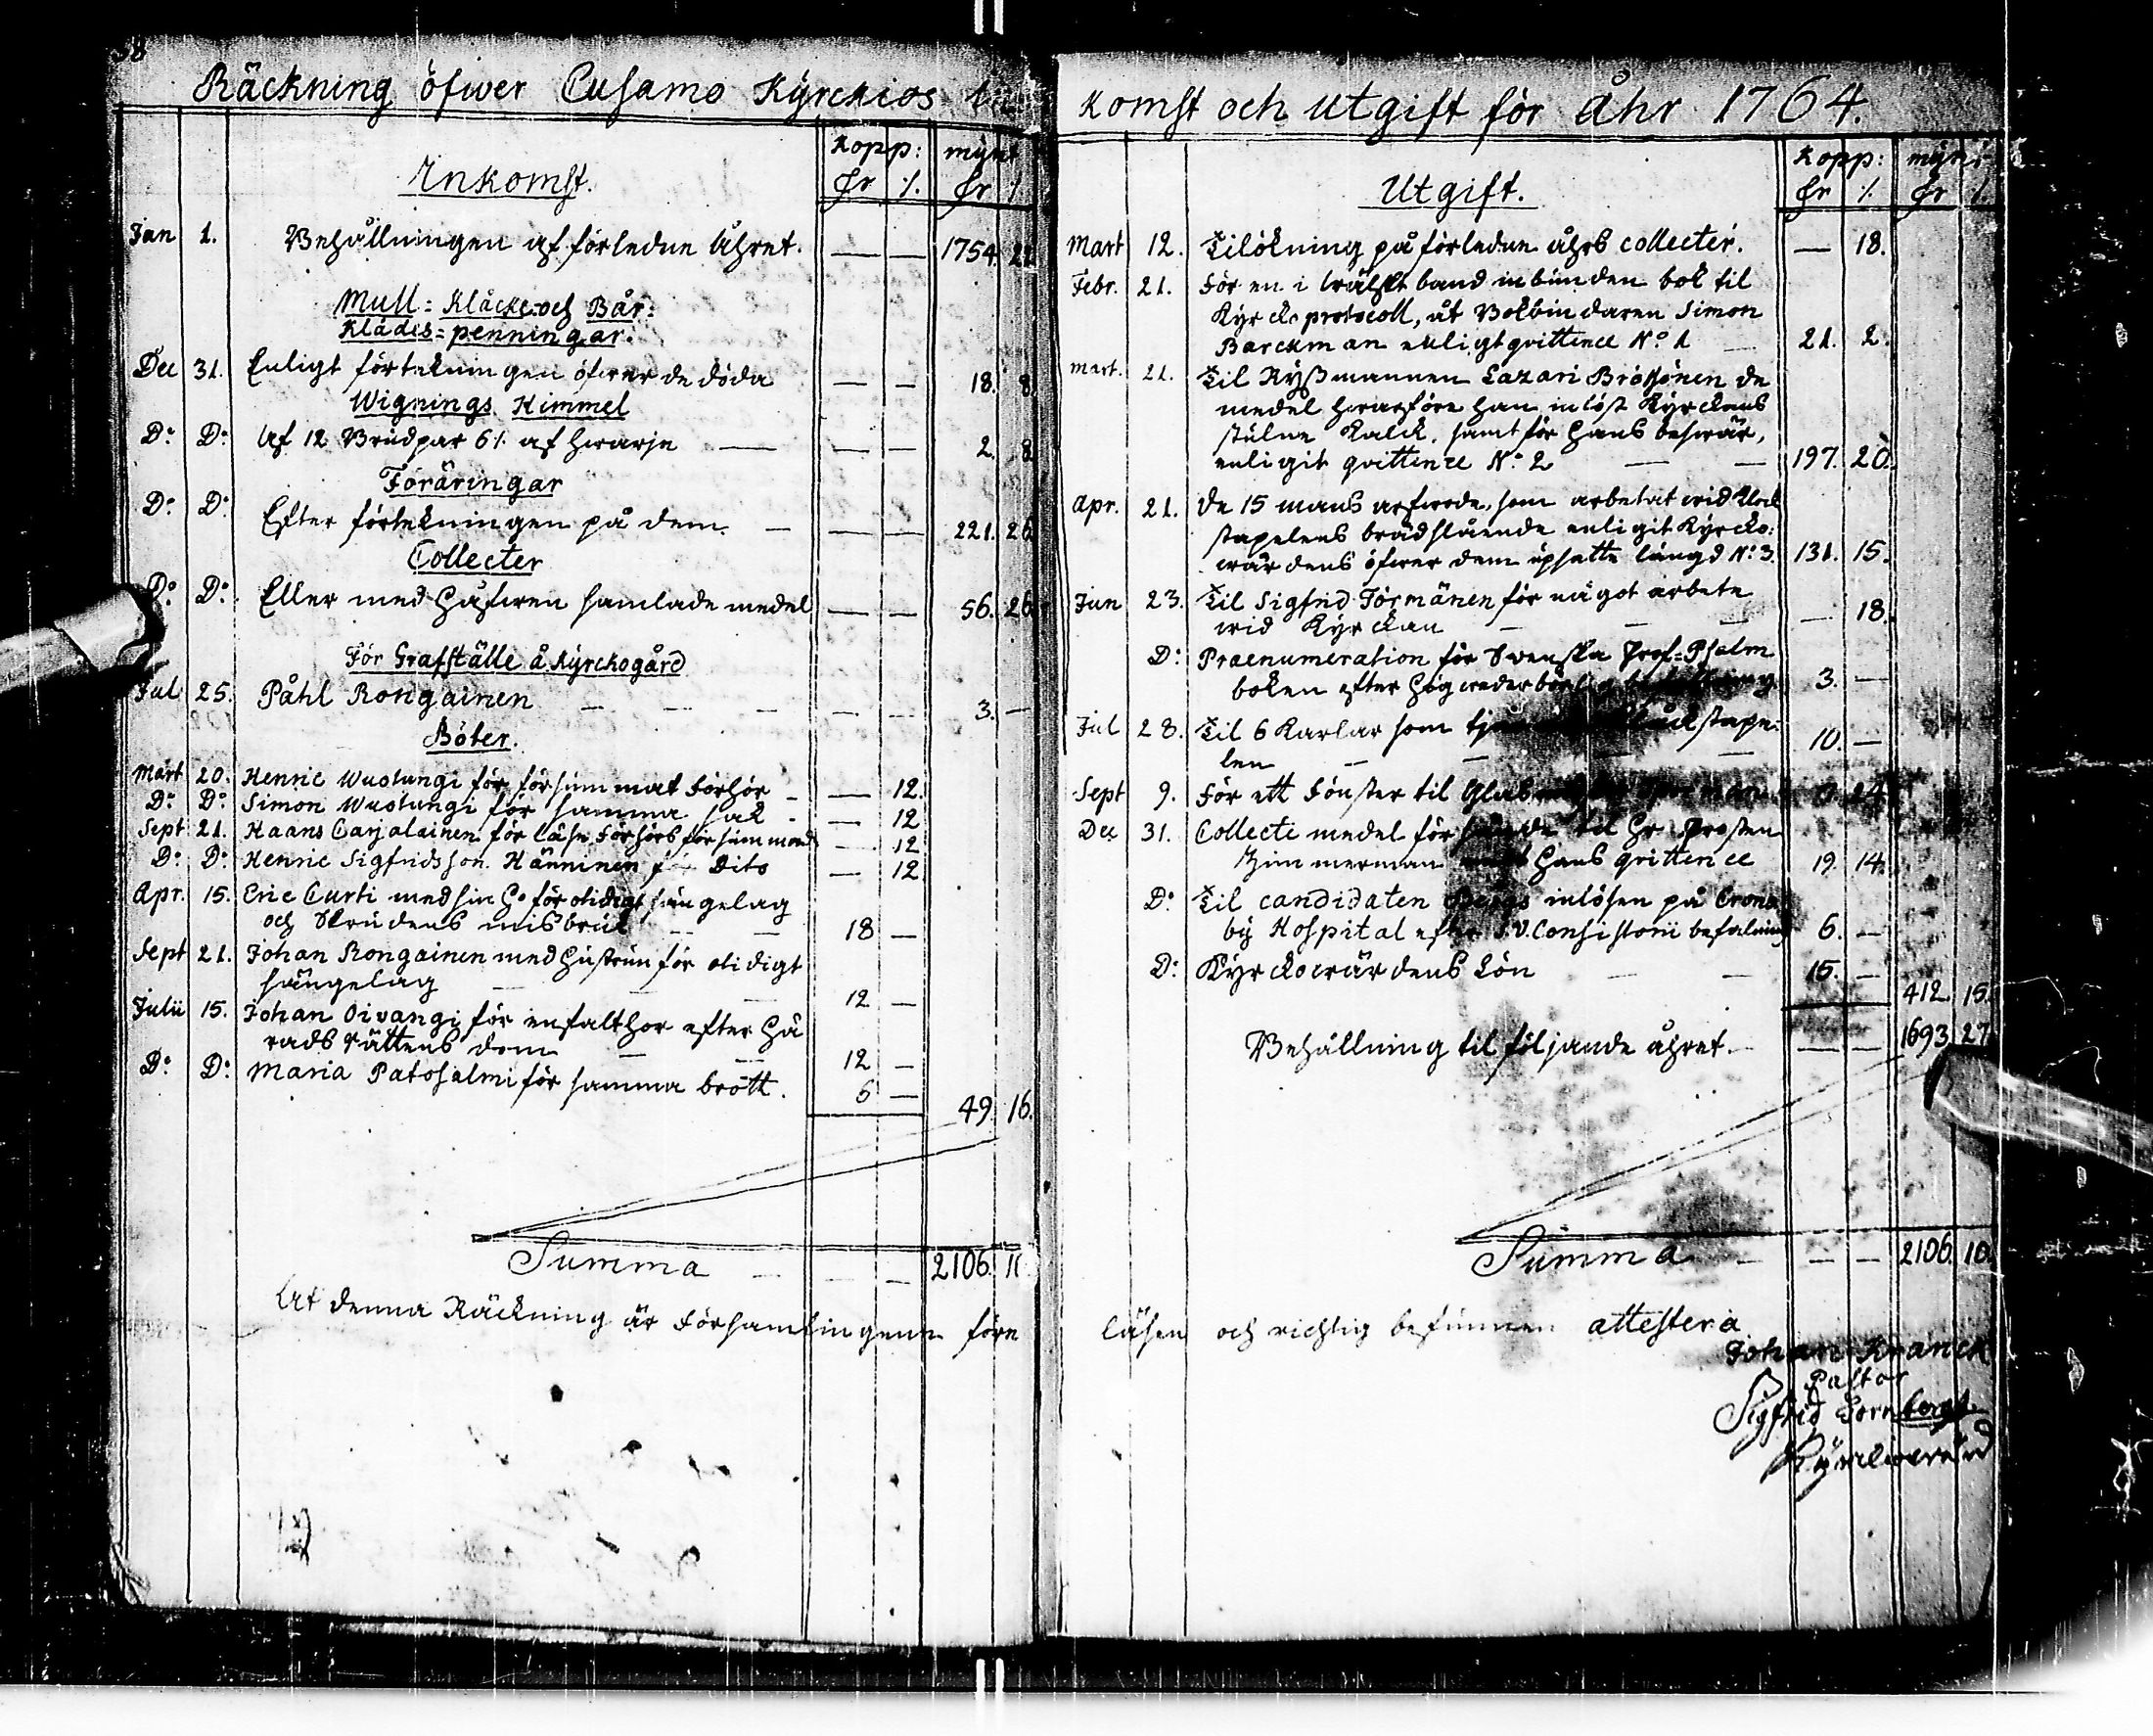 38
Räckning öfwer Cusamo Kyrckios In
Kopp: mynt
Inkomst. Dr ./. Dr ./.
Jan 1. Behållningen af förledne Åhret. — — 1754. 22
Mull- Klåcke- och Bår-
Klädes-penningar.
Dec 31. Enligt förtekningen öfwer de döda — — 18. 8
Wignings Himmel
Do Do Af 12 Brudpar 6 ./. af hwarje — — — 2. 8
Föräringar
Do Do Efter förtekningen på dem. — — — 221. 26
Collecter
Do Do Eller med Håfwen samlade medel — — 56. 26
För Grafställe å Kyrckogård
Jul 25. Påhl Rongainen — — — — — 3. —
Böter.
Mart 20. Henric Wuotungi för försummat Förhör — — 12.
Do Do Simon Wuotungi för samma sak — — 12
Sept 21. Haans Carjalainen för Läse Förhörs försummande — 12
Do Do Henric Sigfridsson Hänninen för Dito — 12
Apr. 15. Eric Curti med sin Ho för otidigt sängelag
och Skrudens misbruk — — 18 —
Sept 21. Johan Rongainen med Hustrun för otidigt
sängelag — — — 12 —
Julii 15. Johan Oivangi för enfalt hor efter Hä
rads Rättens dom — — 12 —
Do Do Maria Patosalmi för samma brott. 6 —
49. 16.
Summa — — — 2106. 11
At denna Räckning är Församlingenn före
komst och utgift för åhr 1764.
Kopp: mynt
Utgift. Dr ./. Dr ./.
Mart 12. Tilökning på förledne åhrs collecter. — 18.
Febr. 21. För en i wälskt band inbunden bok til
Kyrckoprotocoll, åt Bokbindaren Simon
Barckman enligt qvittence No 1 — 21. 2.
Mart. 21. Til Ryssmannen Lazari de
medel hwarföre han inlöst Kyrckans
stulne Kalck, samt för hans beswär,
enligit qvittence No 2 — — 197. 20.
Apr. 21. De 15 mans arfwode, som arbetat wid Klock
stapelens brädslående enligit Kyrcko-
wärdens öfwer dem upsatte längd No 3. 131. 15.
Jun 23. Til Sigfrid Törmänen för något arbete
wid Kyrckan — — — — 18.
Do Praenumeration för Swenska Prof-Psalm
boken efter Högwederbörlig befallning 3. —
Jul 28. Til 6 Karlar som Klåckstape-
len — — — 10. —
Sept 9. För ett Fönster til 24
Dec 31. Collecte medel för til Hr Prosten
Zimmerman hans qvittence 19. 14.
Do Til candidaten inlösen på Crono
by Hospital efter M.V. Consistorii befalning 6. —
Do Kyrckowärdens Lön — — 15. —
412. 15.
Behållning til följande åhret. — — — 1693. 27
Summa — — — 2106. 10.
läsen och richtig befunnen attestera
Johan Kranck
Pastor
Sigfrid Tornberg
Kyrckowärd